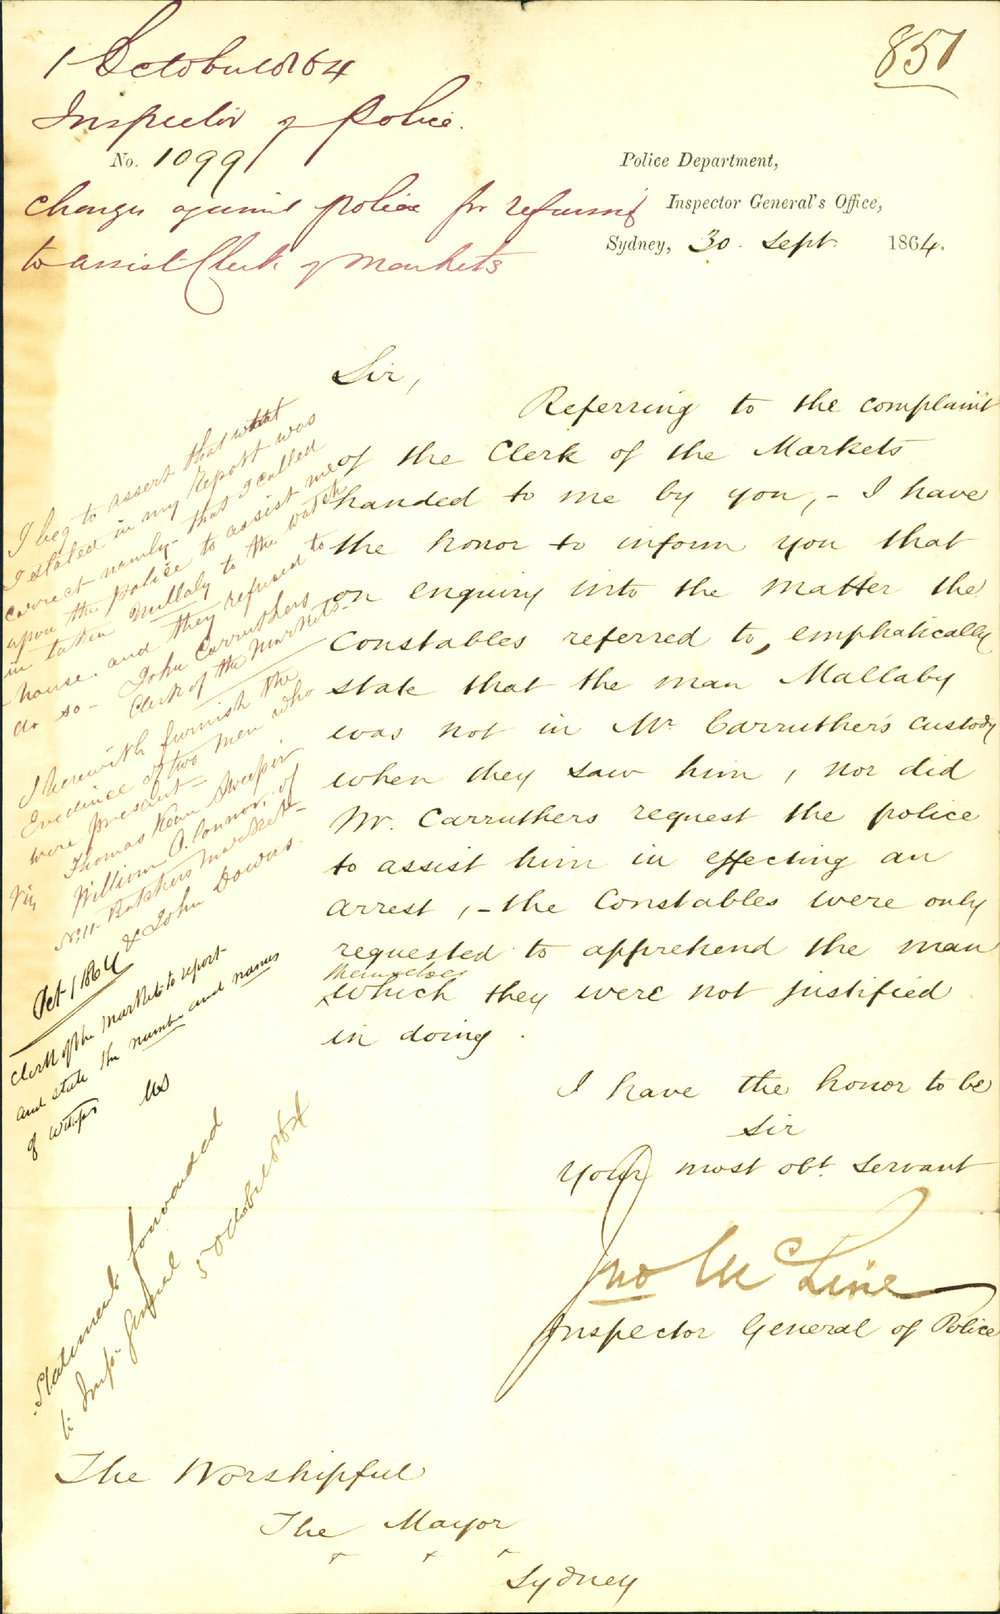 851
1 October 1864
Inspector of Police.
No. 1099
charges against police for refusing
to assist Clerk of Markets
Police Department,
Inspector General's Office,
Sydney, 30. Sept. 1864.
Sir,
Referring to the complaint
of the Clerk of the Markets
handed to me by you, - I have
the honor to inform you that
on enquiry into the matter the
Constables referred to, emphatically
state that the man Mallaby
was not in Mr. Carruther's custody
when they saw him, nor did
Mr. Carruthers request the police
to assist him in effecting an
arrest, - the Constables were only
requested to apprehend the man
themselves
which they were not justified
in doing.
I have the honor to be
Sir
Your most obt. Servant
Jno McLerie
Inspector General of Police
The Worshipful
The Mayor
Sydney
I beg to assert that what
I stated in my report was
correct namly - that I called
upon the police to assist me
in taken Mullaly to the watch
house. and they refused to
do so -
John Carruthers
Clerk of the Markets.
I herewith furnish the
Evidence of two men who
were present -
Viz Thomas Kean Sweeper
William O.Connor, of
No. 11. Butchers Market -
& John Downs.
Oct 1 1864
Clerk of the Markets to report
and state the number and names
of
Statement forwarded
to Insp. General
5 October 64